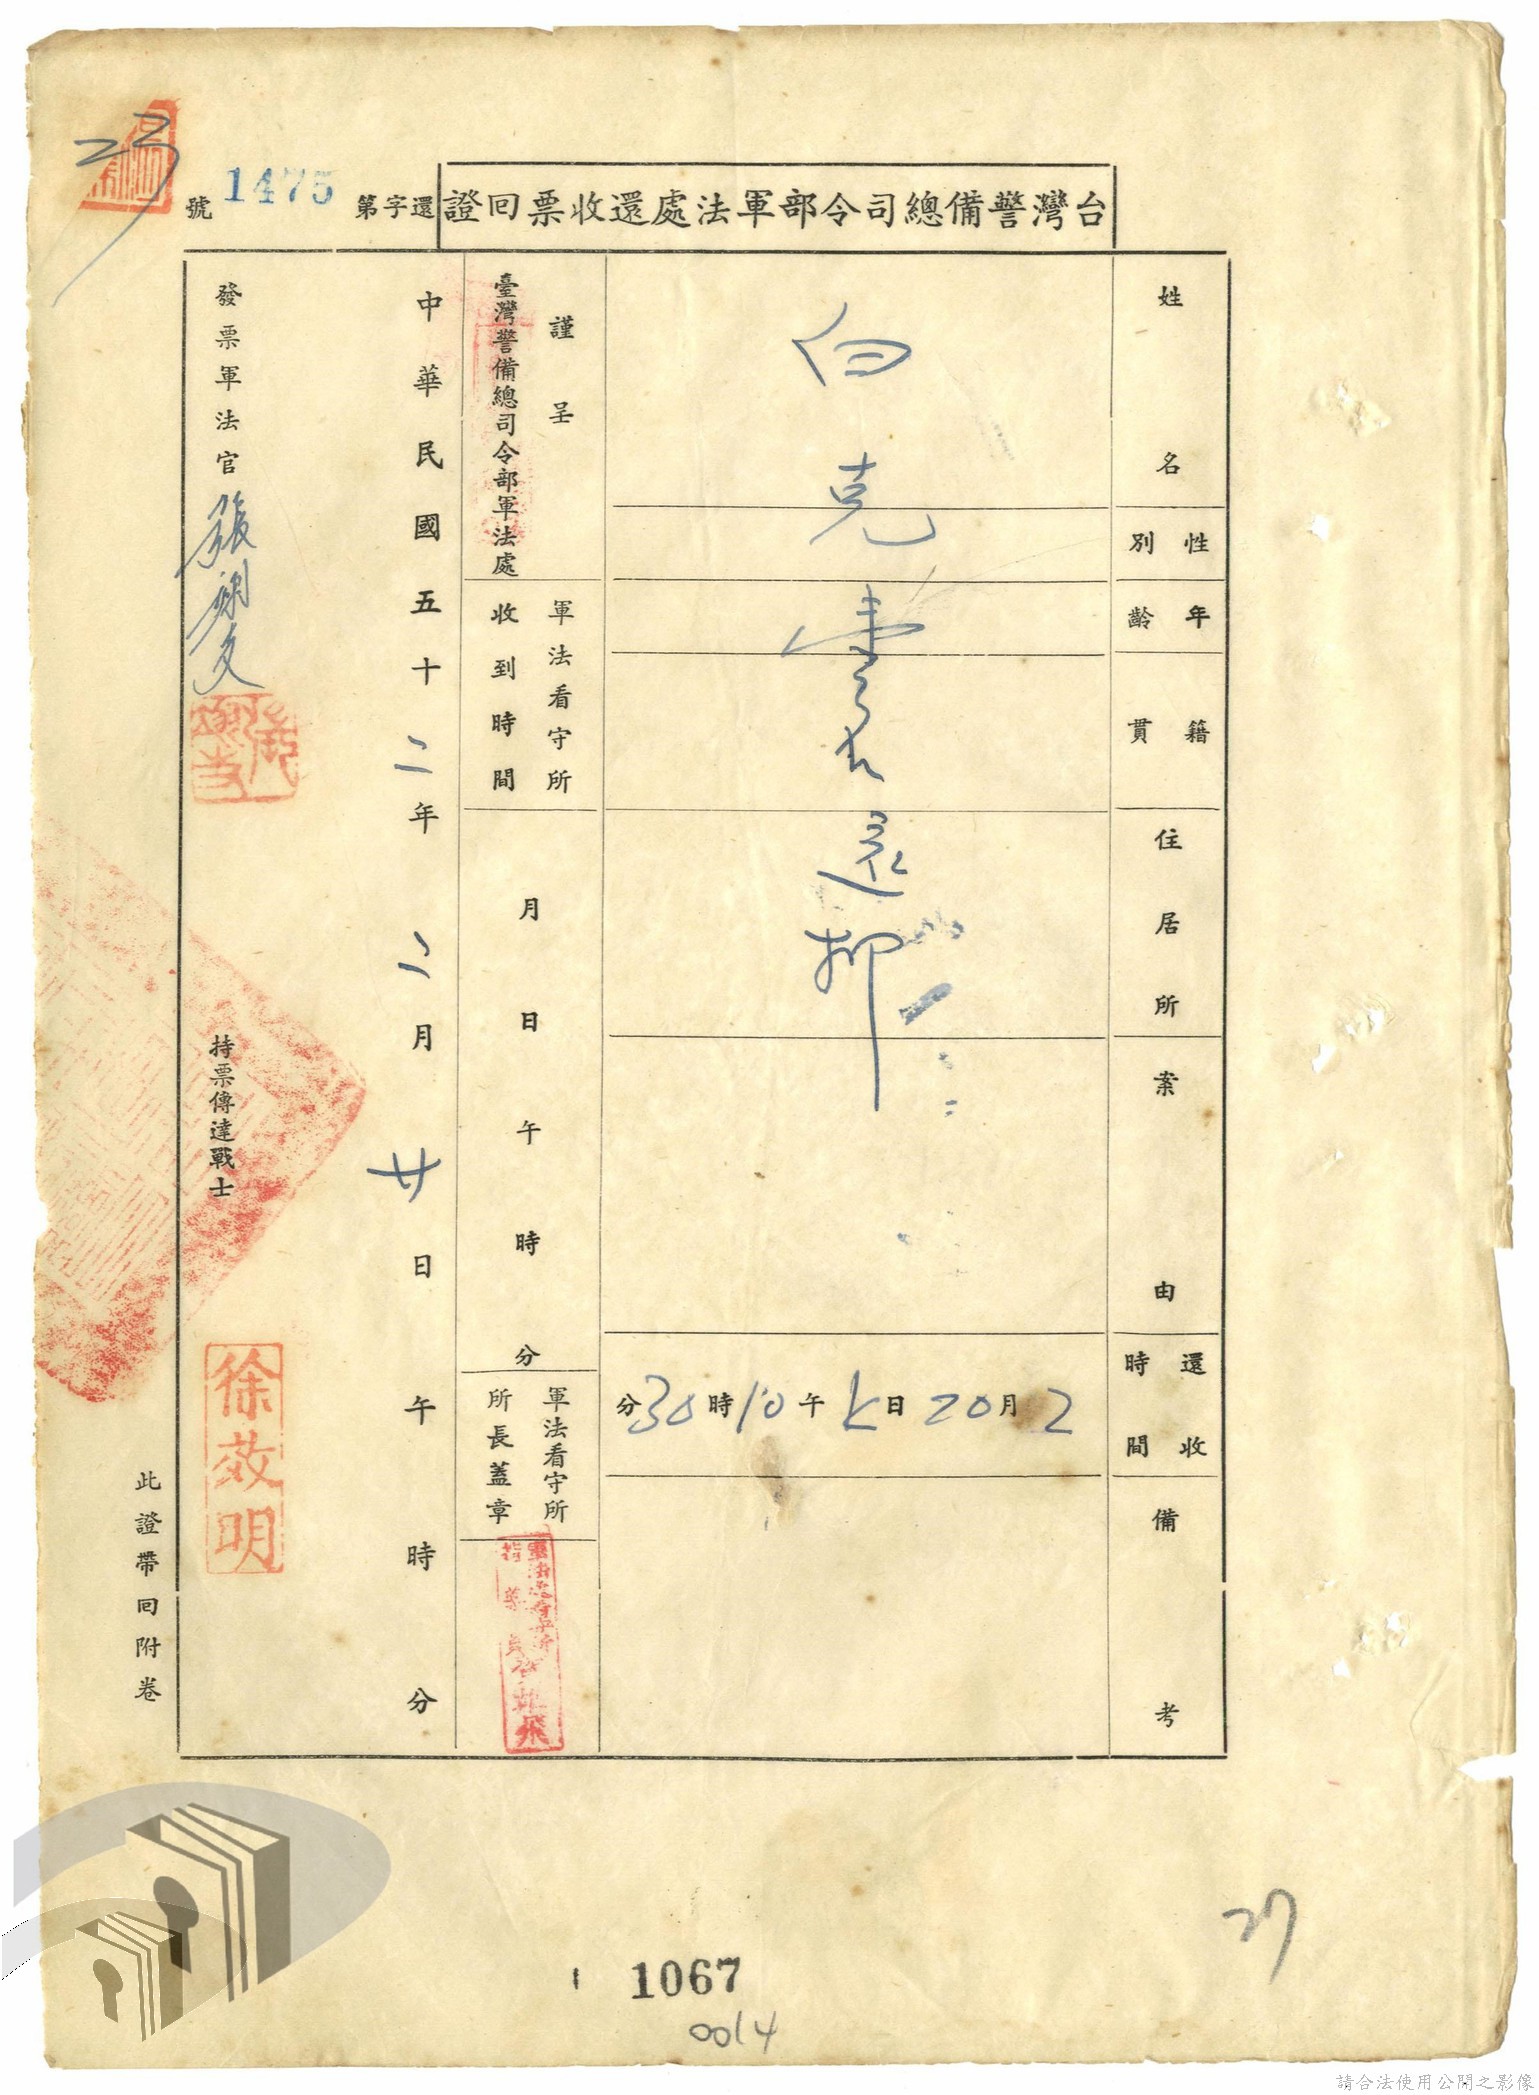 台灣警備總司令部軍法處還收票回證
還字第1475號
姓名
性別
年齡
籍貫
住居所
案由
還收時間
備考
白克
還押
2月20日上午10時30分
謹呈
臺灣警備總司令部軍法處
軍法看守所收到時間
月日午時分
軍法看守所所長蓋章
中華民國五十二年二月廿日午時分
發票軍法官
持票傳達戰士
徐效明
此證帶回附卷
23
27
1067
0014
請合法使用公開之影像